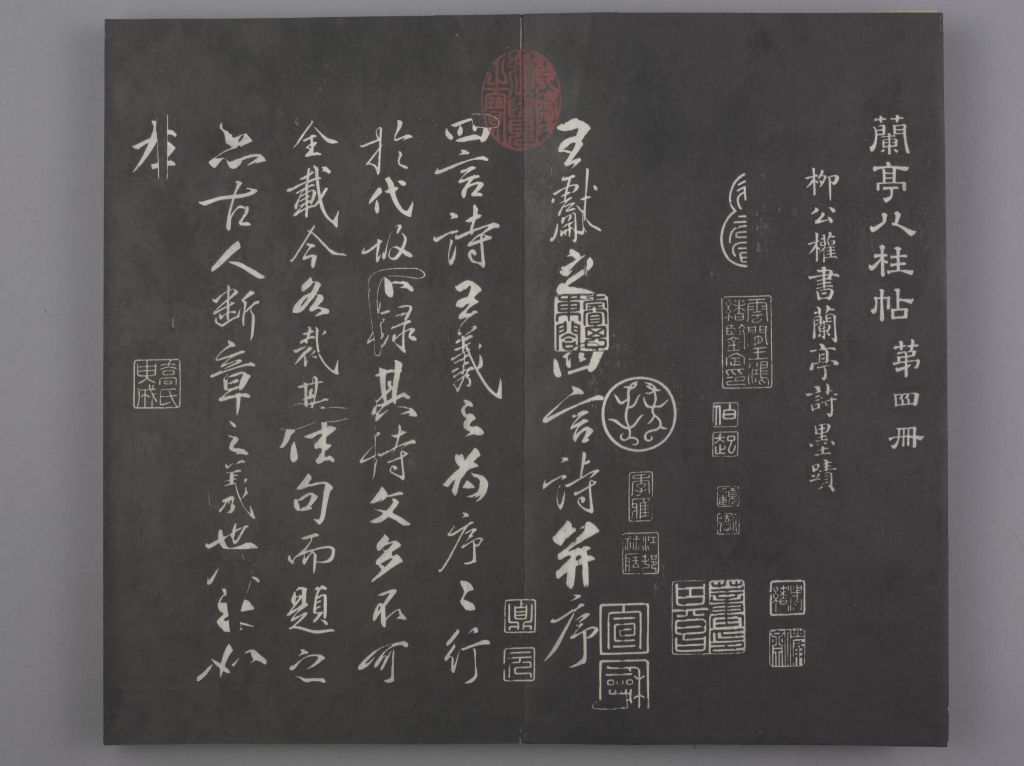 蘭亭八柱帖 第四冊
柳公權書蘭亭詩墨蹟
雲間王鴻緒鑒定印
伯起
王獻之四言詩并序
四言詩王羲之為序〻行
於代故不錄其詩文多不可
全載今各裁其佳句而題之
亦古人斷章之義也 如
左